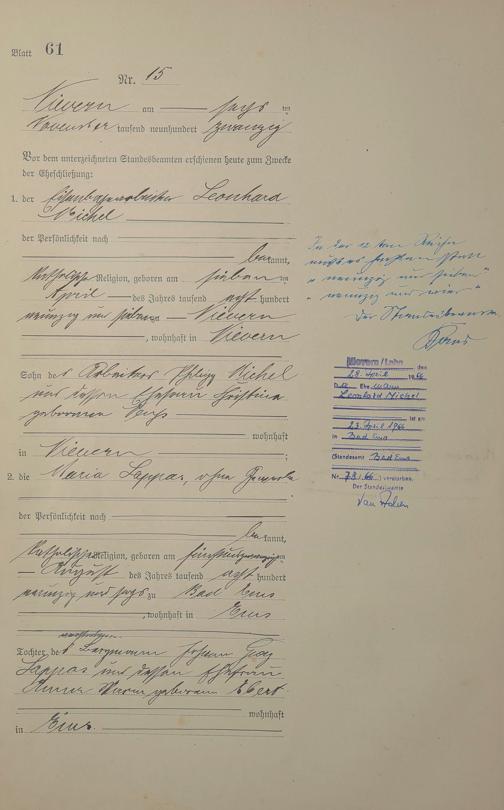 Blatt 61
Nr. 15
Nievern am sechs ten
November tausend neunhundert zwanzig
Vor dem unterzeichneten Standesbeamten erschienen heute zum Zwecke
der Eheschließung:
1. der Eisenbahnarbeiter Leonhard
Michel
der Persönlichkeit nach
bekannt,
katholischer Religion, geboren am sieben ten
April des Jahres tausend acht hundert
neunzig und sieben Nievern
, wohnhaft in Nievern
Sohn des Arbeiters Philipp Michel
und dessen Ehefrau Christina
geborenen
wohnhaft
in Nievern
2. die Maria Lappas, ohne
der Persönlichkeit nach
bekannt,
katholischer Religion, geboren am fünfundzwanzigsten
August des Jahres tausend acht hundert
neunzig und sechs zu Bad Ems
, wohnhaft in Ems
Tochter des verstorbenen Bergmann Johann Georg
Lappas und dessen Ehefrau
Anna Maria geborenen Ebert
wohnhaft
in Ems
In der 12 ten Reihe
muß es heißen statt
"neunzig und sieben"
"neunzig und vier"
Der Standesbeamte
Nievern/Lahn den
28. April 1966
Der Ehemann
Leonhard Michel
ist am
23. April 1966
in Bad Ems
(Standesamt Bad Ems
Nr. 78/66) verstorben.
Der Standesbeamte